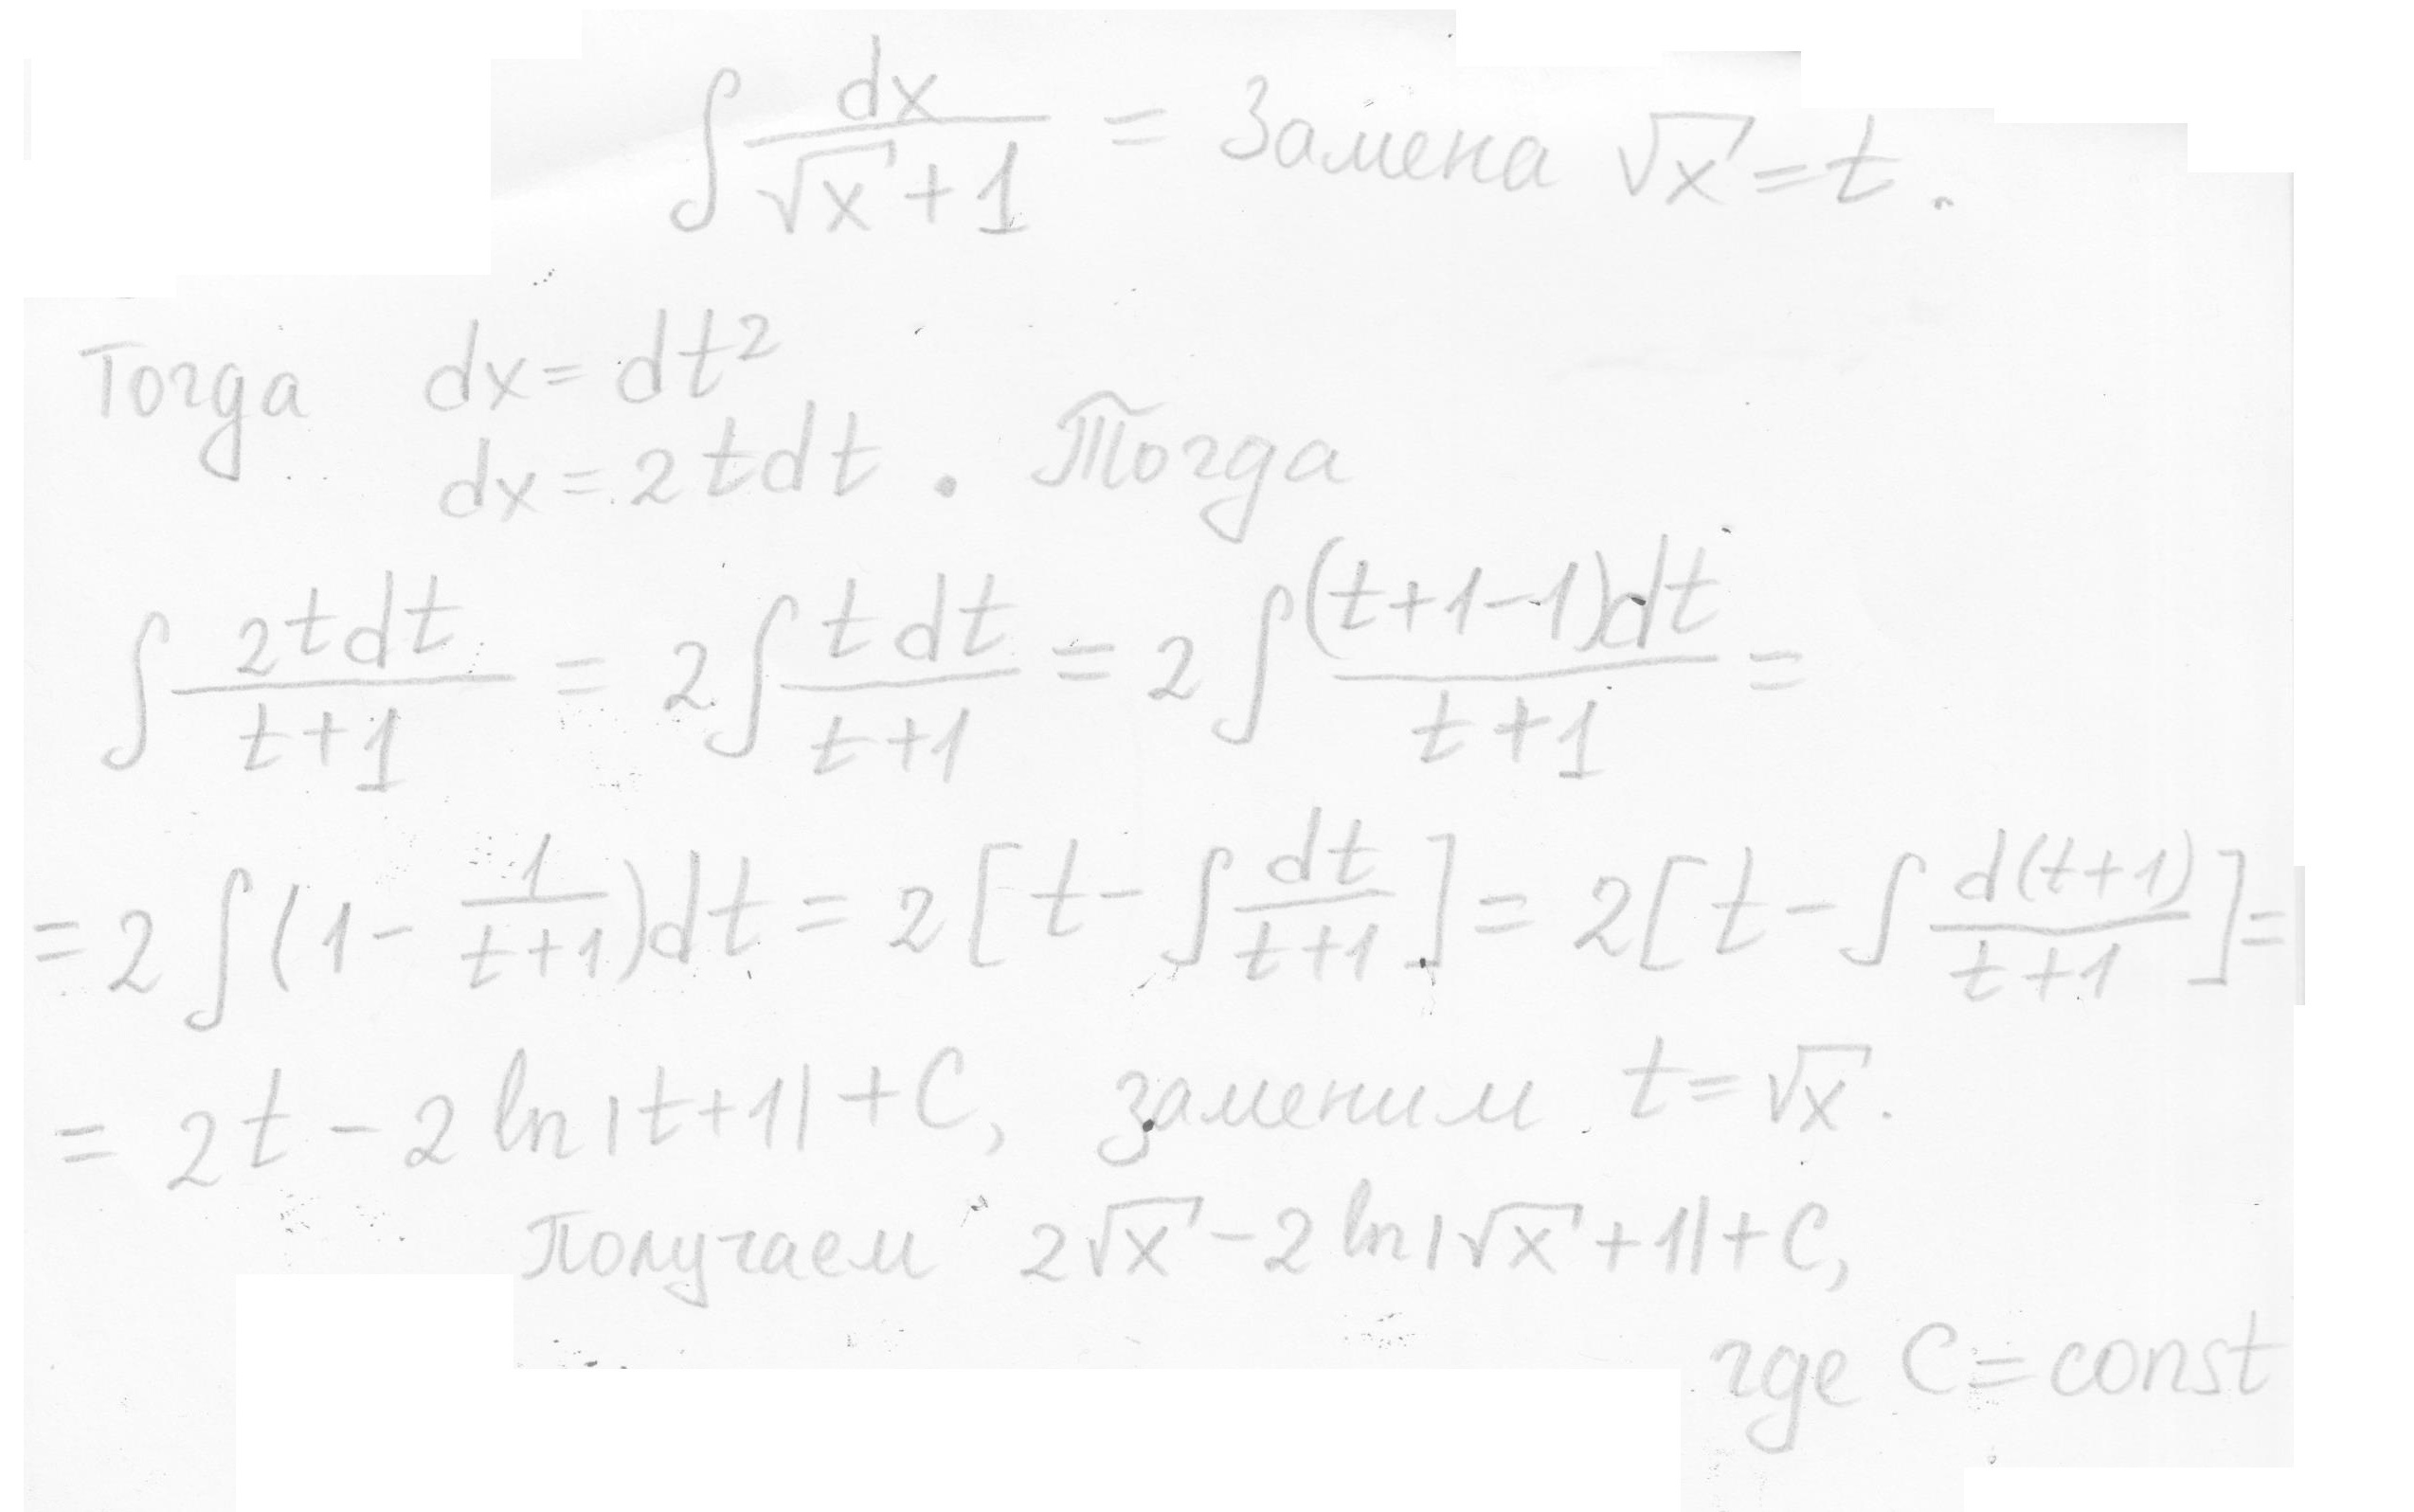 ∫ dx/(√x + 1) = Замена √x = t.
Тогда dx = dt²
dx = 2tdt. Тогда
∫ 2tdt/(t+1) = 2∫ t dt/(t+1) = 2∫ (t+1-1)dt/(t+1) =
= 2∫(1 - 1/(t+1))dt = 2[t - ∫ dt/(t+1)] = 2[t - ∫ d(t+1)/(t+1)] =
= 2t - 2 ln|t+1| + C, заменим t = √x.
Получаем 2√x - 2 ln|√x + 1| + C,
где C = const